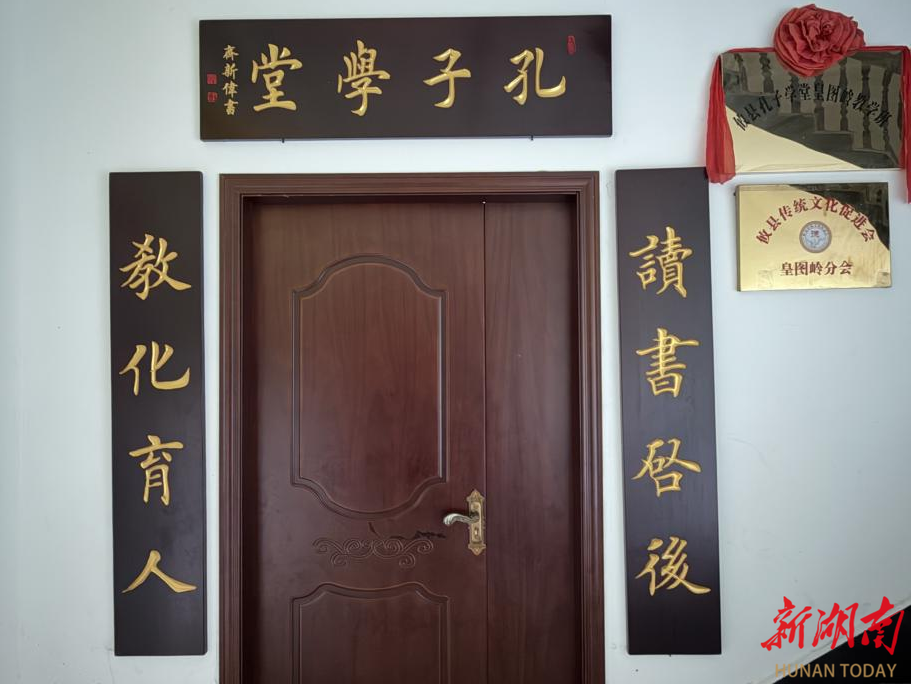 孔子學堂
齊新偉書
讀書啓後
教化育人
攸县孔子学堂皇图岭教学班
攸县传统文化促进会
皇图岭分会
新湖南
HUNAN TODAY